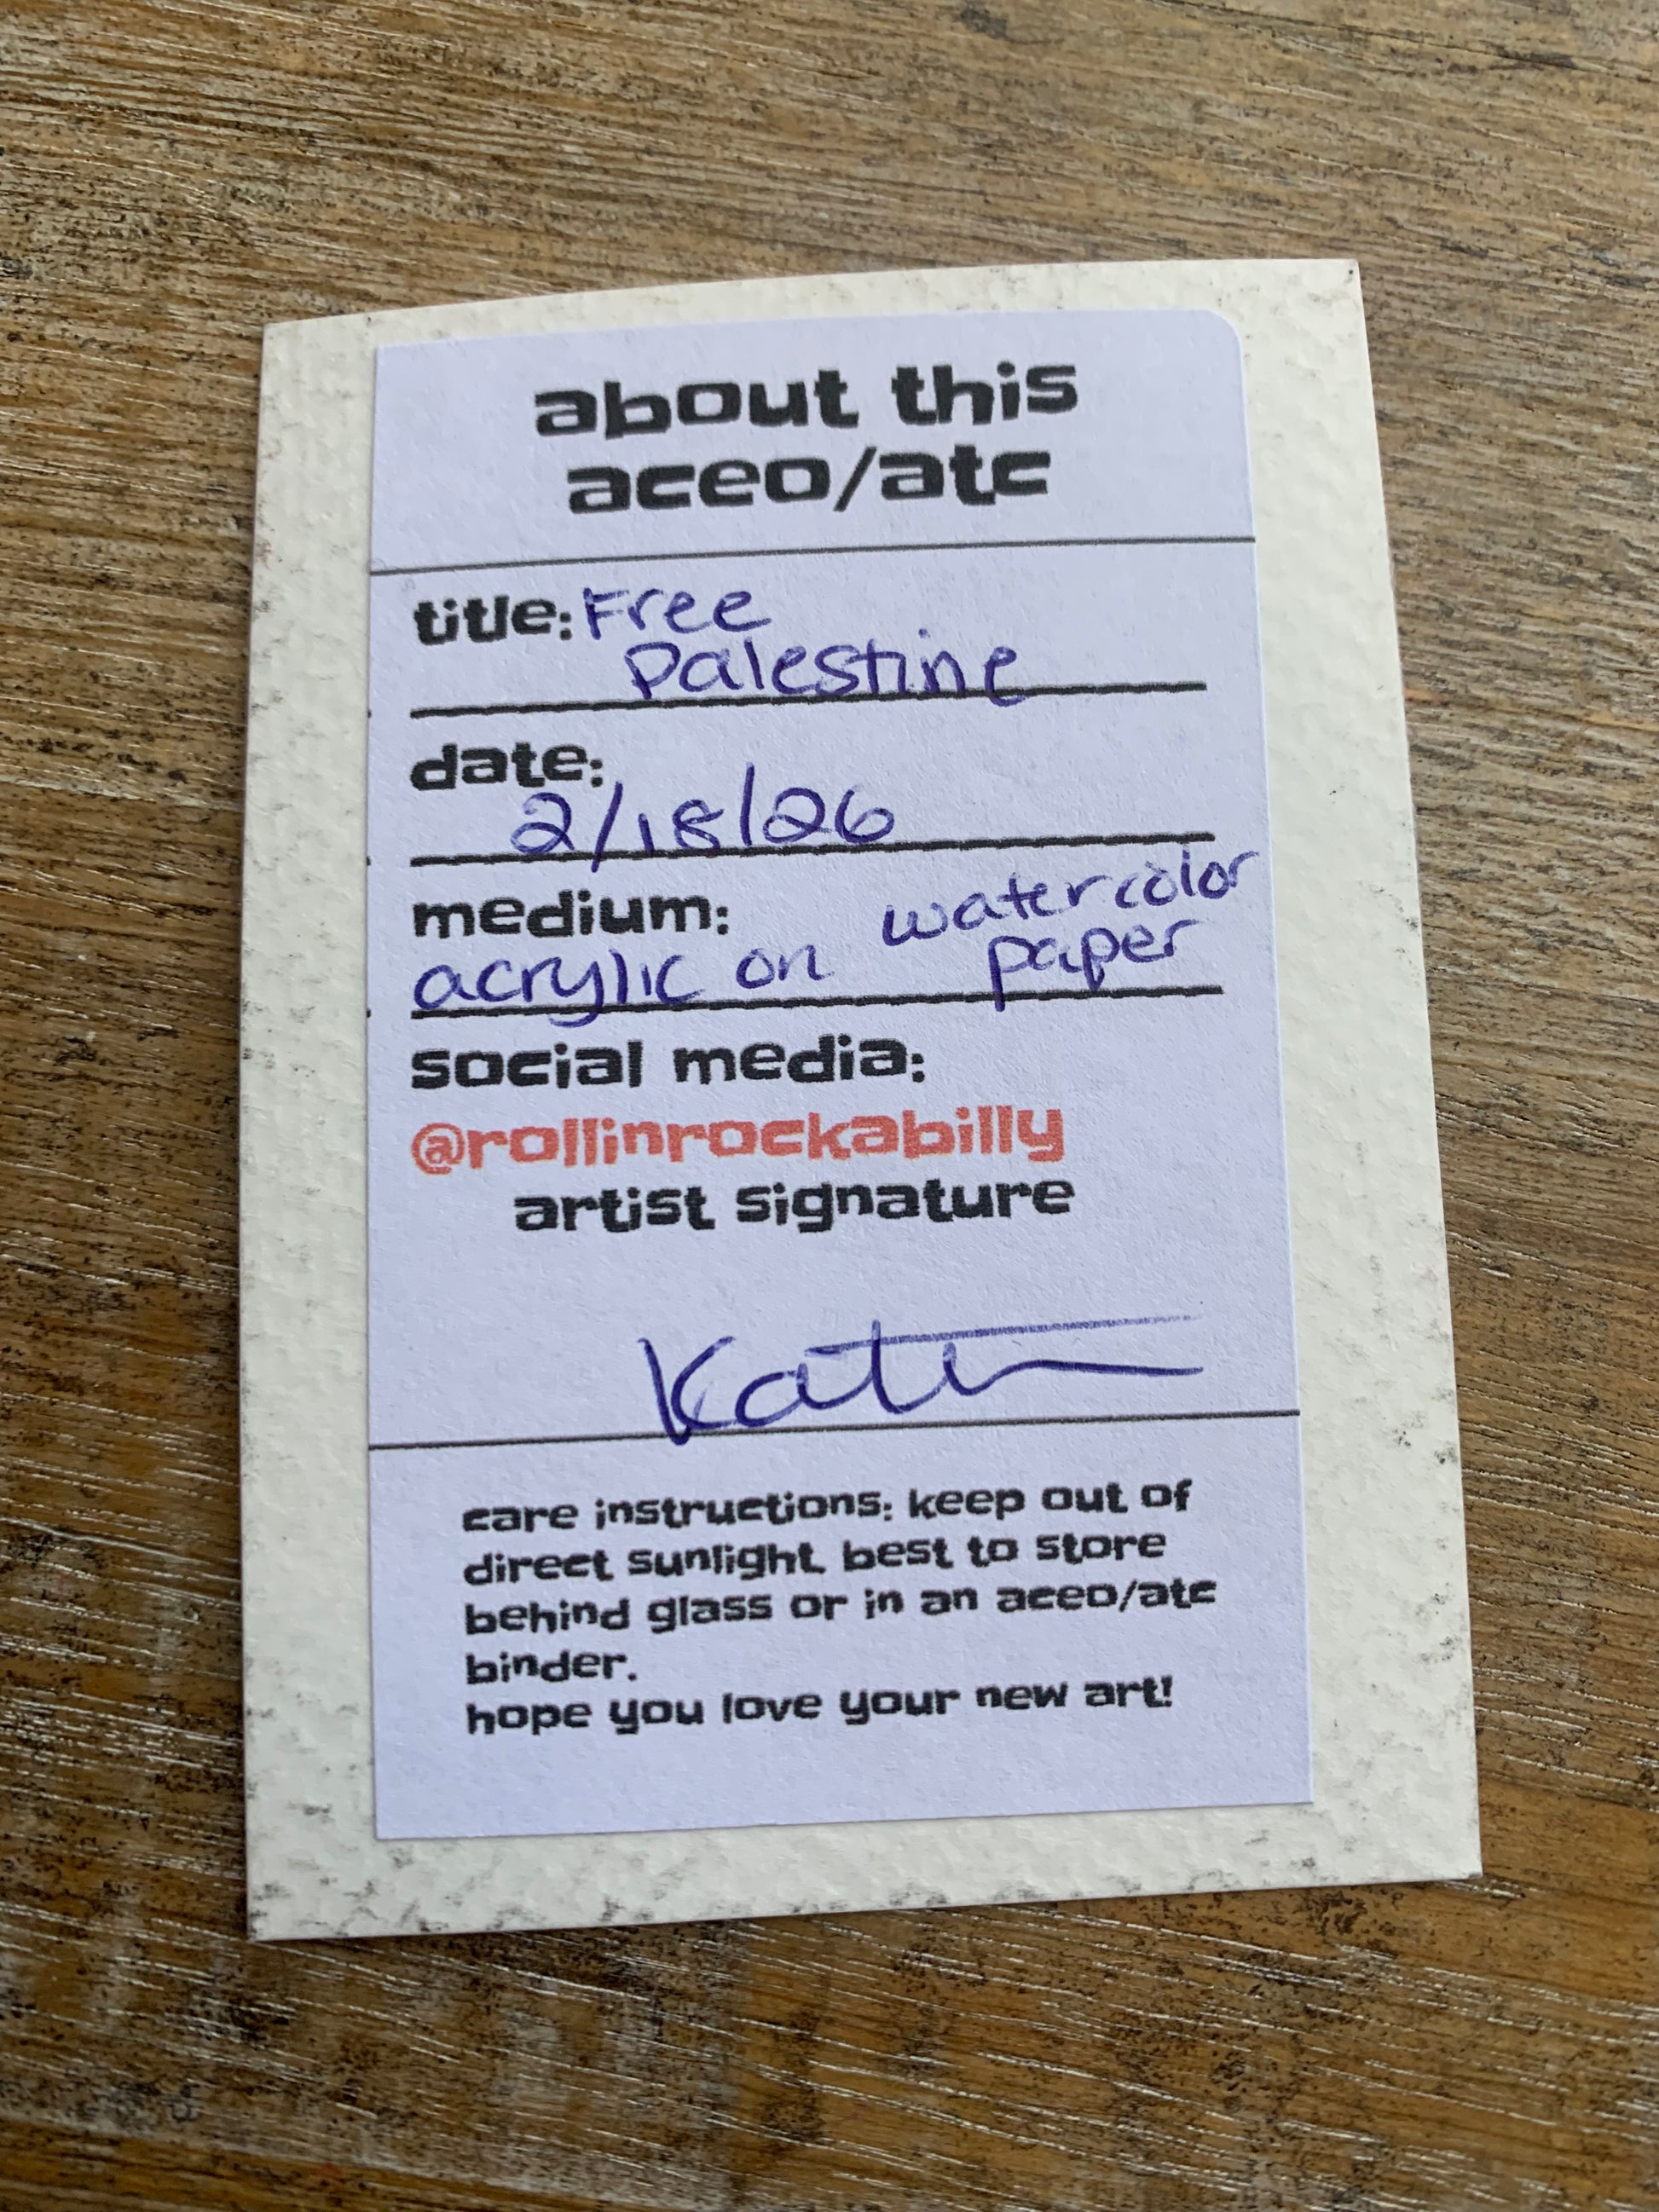 about this
aceo/atc
title: Free
Palestine
date:
2/18/26
medium: watercolor
acrylic on paper
social media:
@rollinrockabilly
artist signature
care instructions: keep out of
direct sunlight. best to store
behind glass or in an aceo/atc
binder.
hope you love your new art!